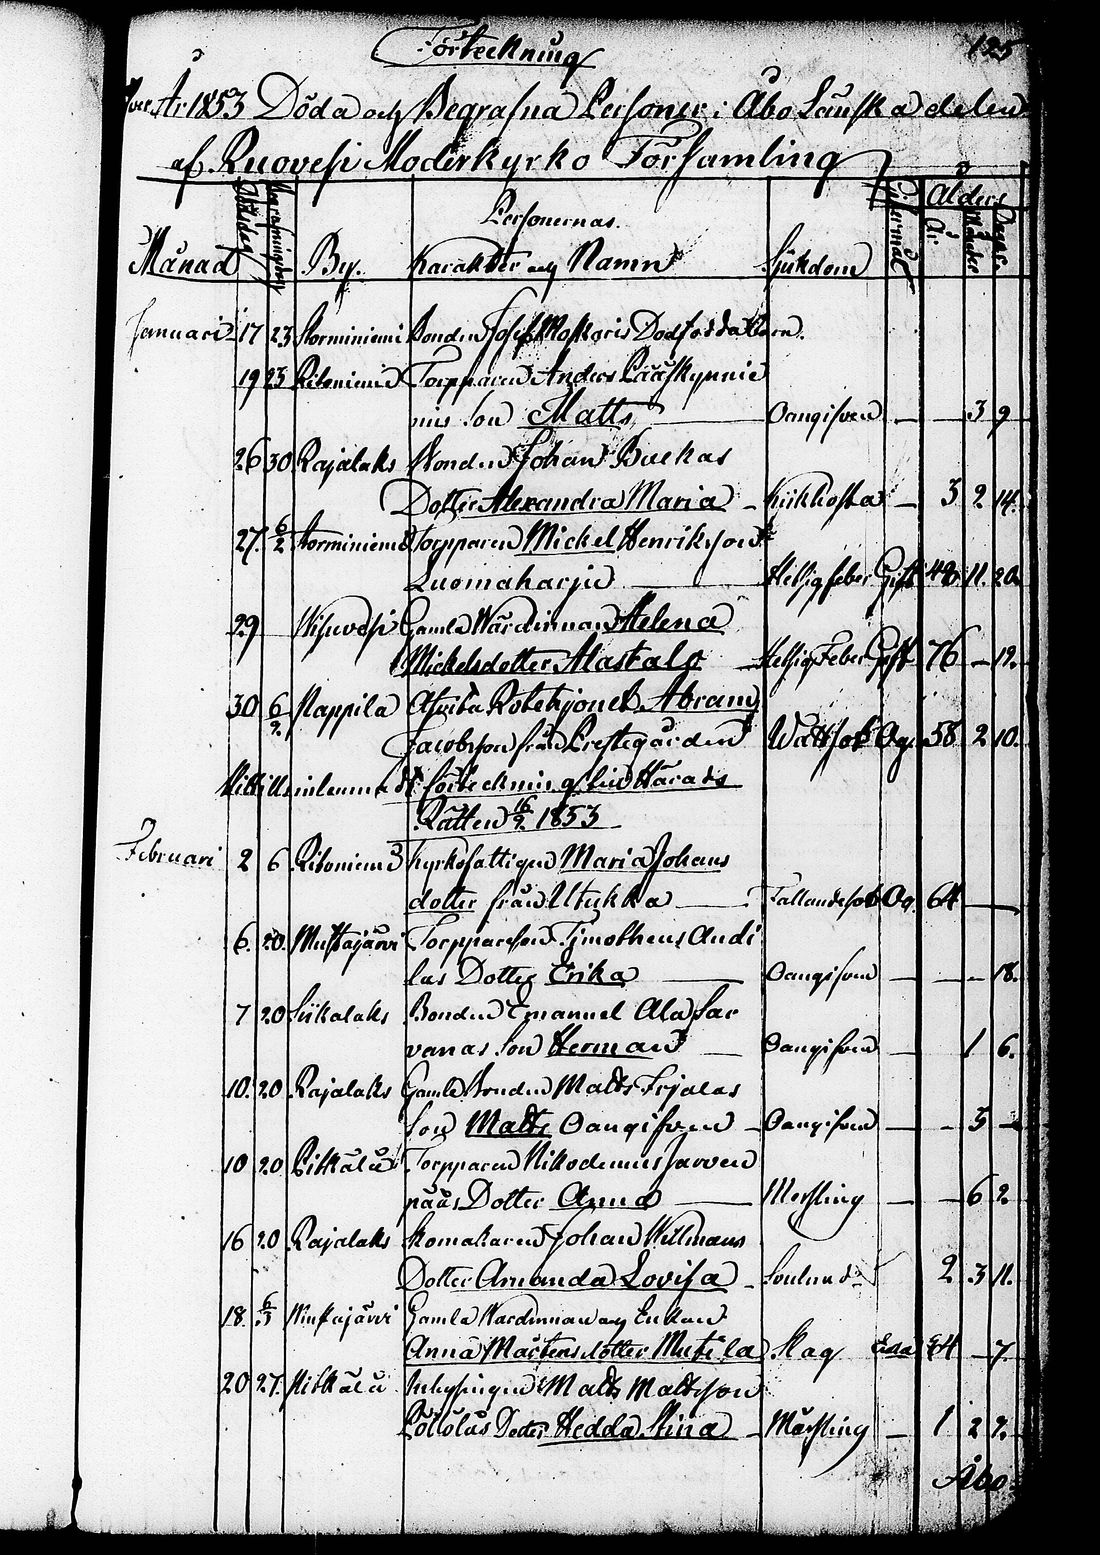 125
Förteckning
öfver År 1853 Döda och Begrafna Personer i Åbo Länska delen
af Ruovesi Moderkyrko Församling
Månad Dödsdag Begrafningsdag By. Personernas. Karakter och Namn Sjukdom Civilstånd Ålders År Månader Dagar
Januari 17 23 Storminiemi Bonden Josef Dödfödda Barn.
19 23 Ritoniemi Torpparen Anders Pääskynnie
mis Son Matts Oangifven — — 3 9
26 30 Rajalaks Bonden Johan Buckas
Dotter Alexandra Maria Kikhosta — 3 2 14.
27. 6/2 Storminiemi Torpparen Mickel Henriksson
Luomaharju Hetsigfeber Gift 48 11. 20.
29 Wisuvesi Gamla Wärdinnan Helena
Mickelsdotter Alastalo Hetsig Feber Gift 76 — 19.
30 6/2 Pappila Afvita Rotehjonet Abram
Jacobsson från Prestegården Wattsot Og. 58 2 10.
förteckning Härads
Rätten 16/2 1853
Februari 2 6 Ritoniemi Kyrkofattigen Maria Johans
dotter från Utukka Fallandesot Og. 64 —
6. 20. Mustajärvi Torpparson Timotheus Andi
las Dotter Erika Oangifven — — — 18.
7 20 Siikalaks Bonden Emanuel Ala Sar
vanas Son Herman Oangifven — 1 6.
10. 20 Rajalaks Gamla Bonden Matts Frjalas
Son Matts Oangifven Oangifven — — 5 —
10 20 Pitkälä Torpparen Nikodemus Jarven
pääs Dotter Anna Messling — — 6 2.
16 20 Rajalaks Skomakaren Johan Willmans
Dotter Amanda Lovisa 2 3 11.
18. 6/3 Mustajärvi Gamla Wardinnan och Enkan
Anna Mårtensdotter Mutila Slag Enka 84 — 7.
20 27. Pitkälä Inhysingen Matts Mattsson
Pöllöläs Doter Hedda Stina Mässling — 1 2 7.
Åbo